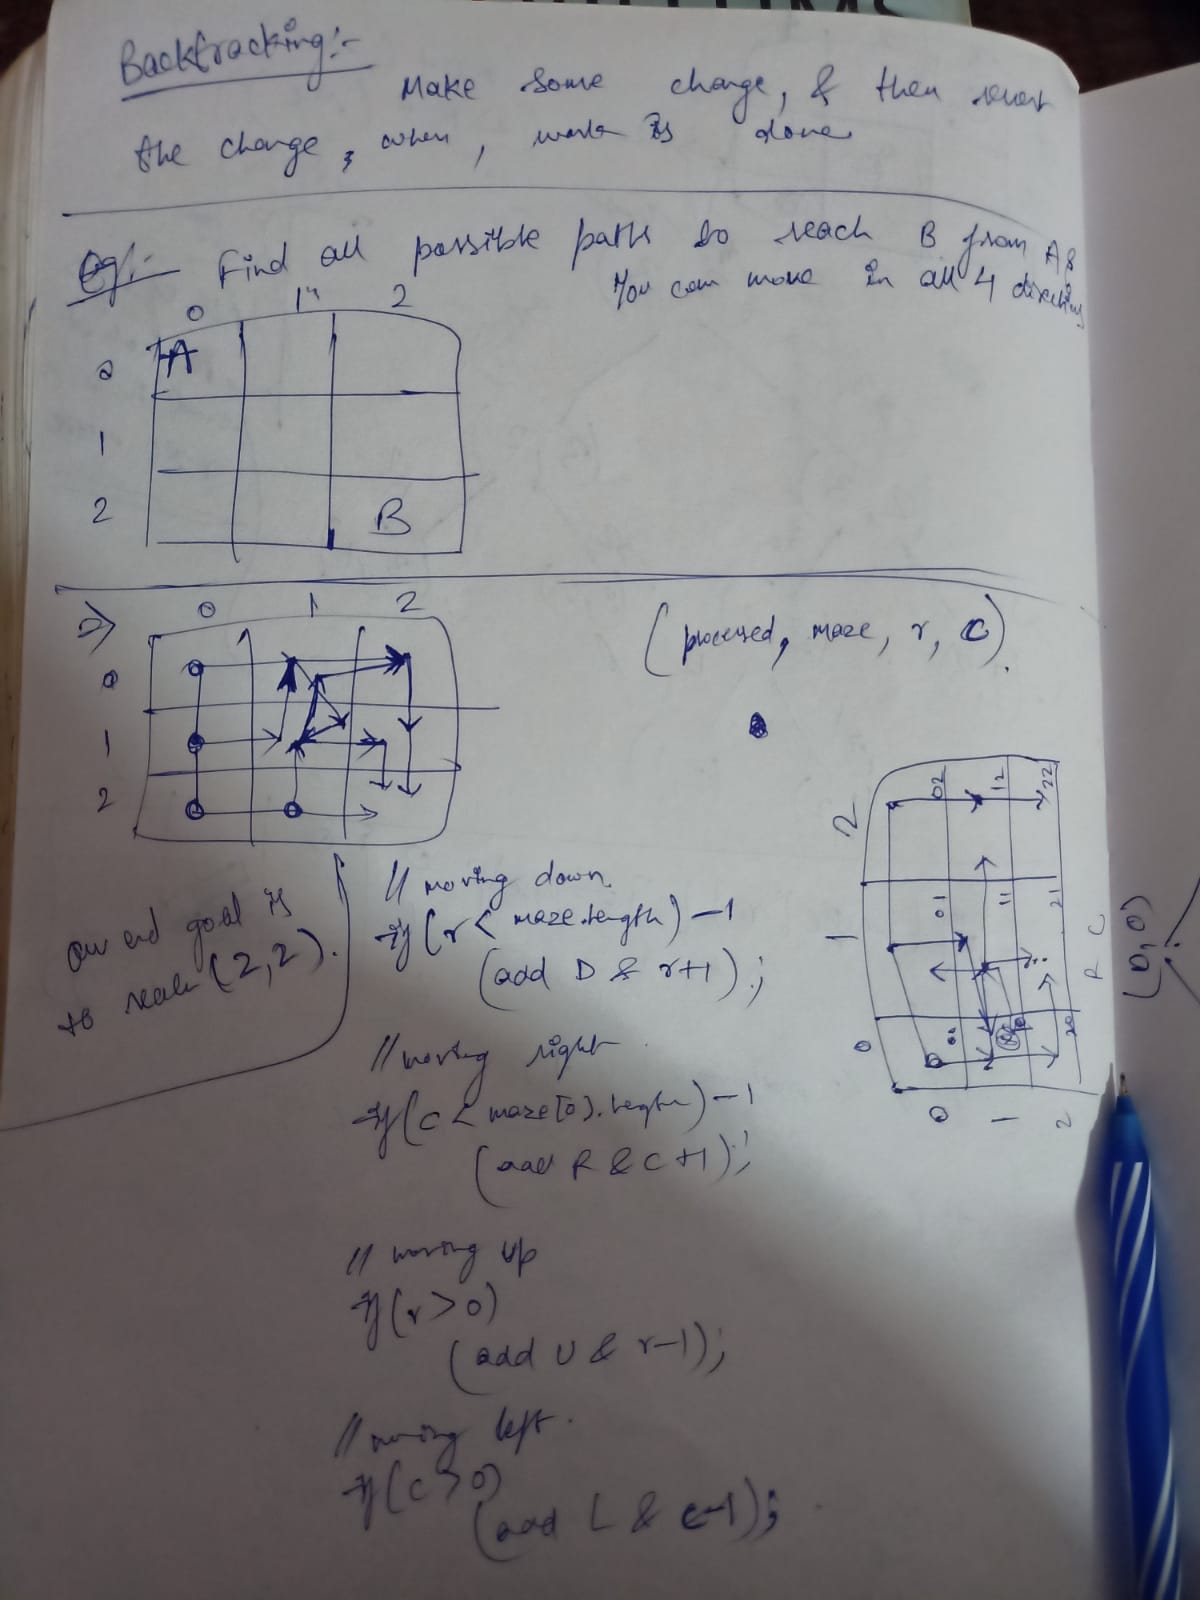 Backtracking:-
Make some change, & then revert
the change, when, work is done
Eg:- Find all possible paths to reach B from A &
You can move in all 4 directions
0 1 2
0 A
1
2 B
=> 0 1 2
0
1
2
(processed, maze, r, c).
our end goal is
to reach (2,2).
// moving down
if (r < maze.length) -1
(add D & r+1);
// moving right
if (c < maze[0].length) -1
(add R & c+1);
// moving up
if (r > 0)
(add U & r-1);
// moving left
if (c > 0)
(add L & c-1);
2 02 12 22
1 01 11 21
0 20
0 1 2
R C
(0,0)